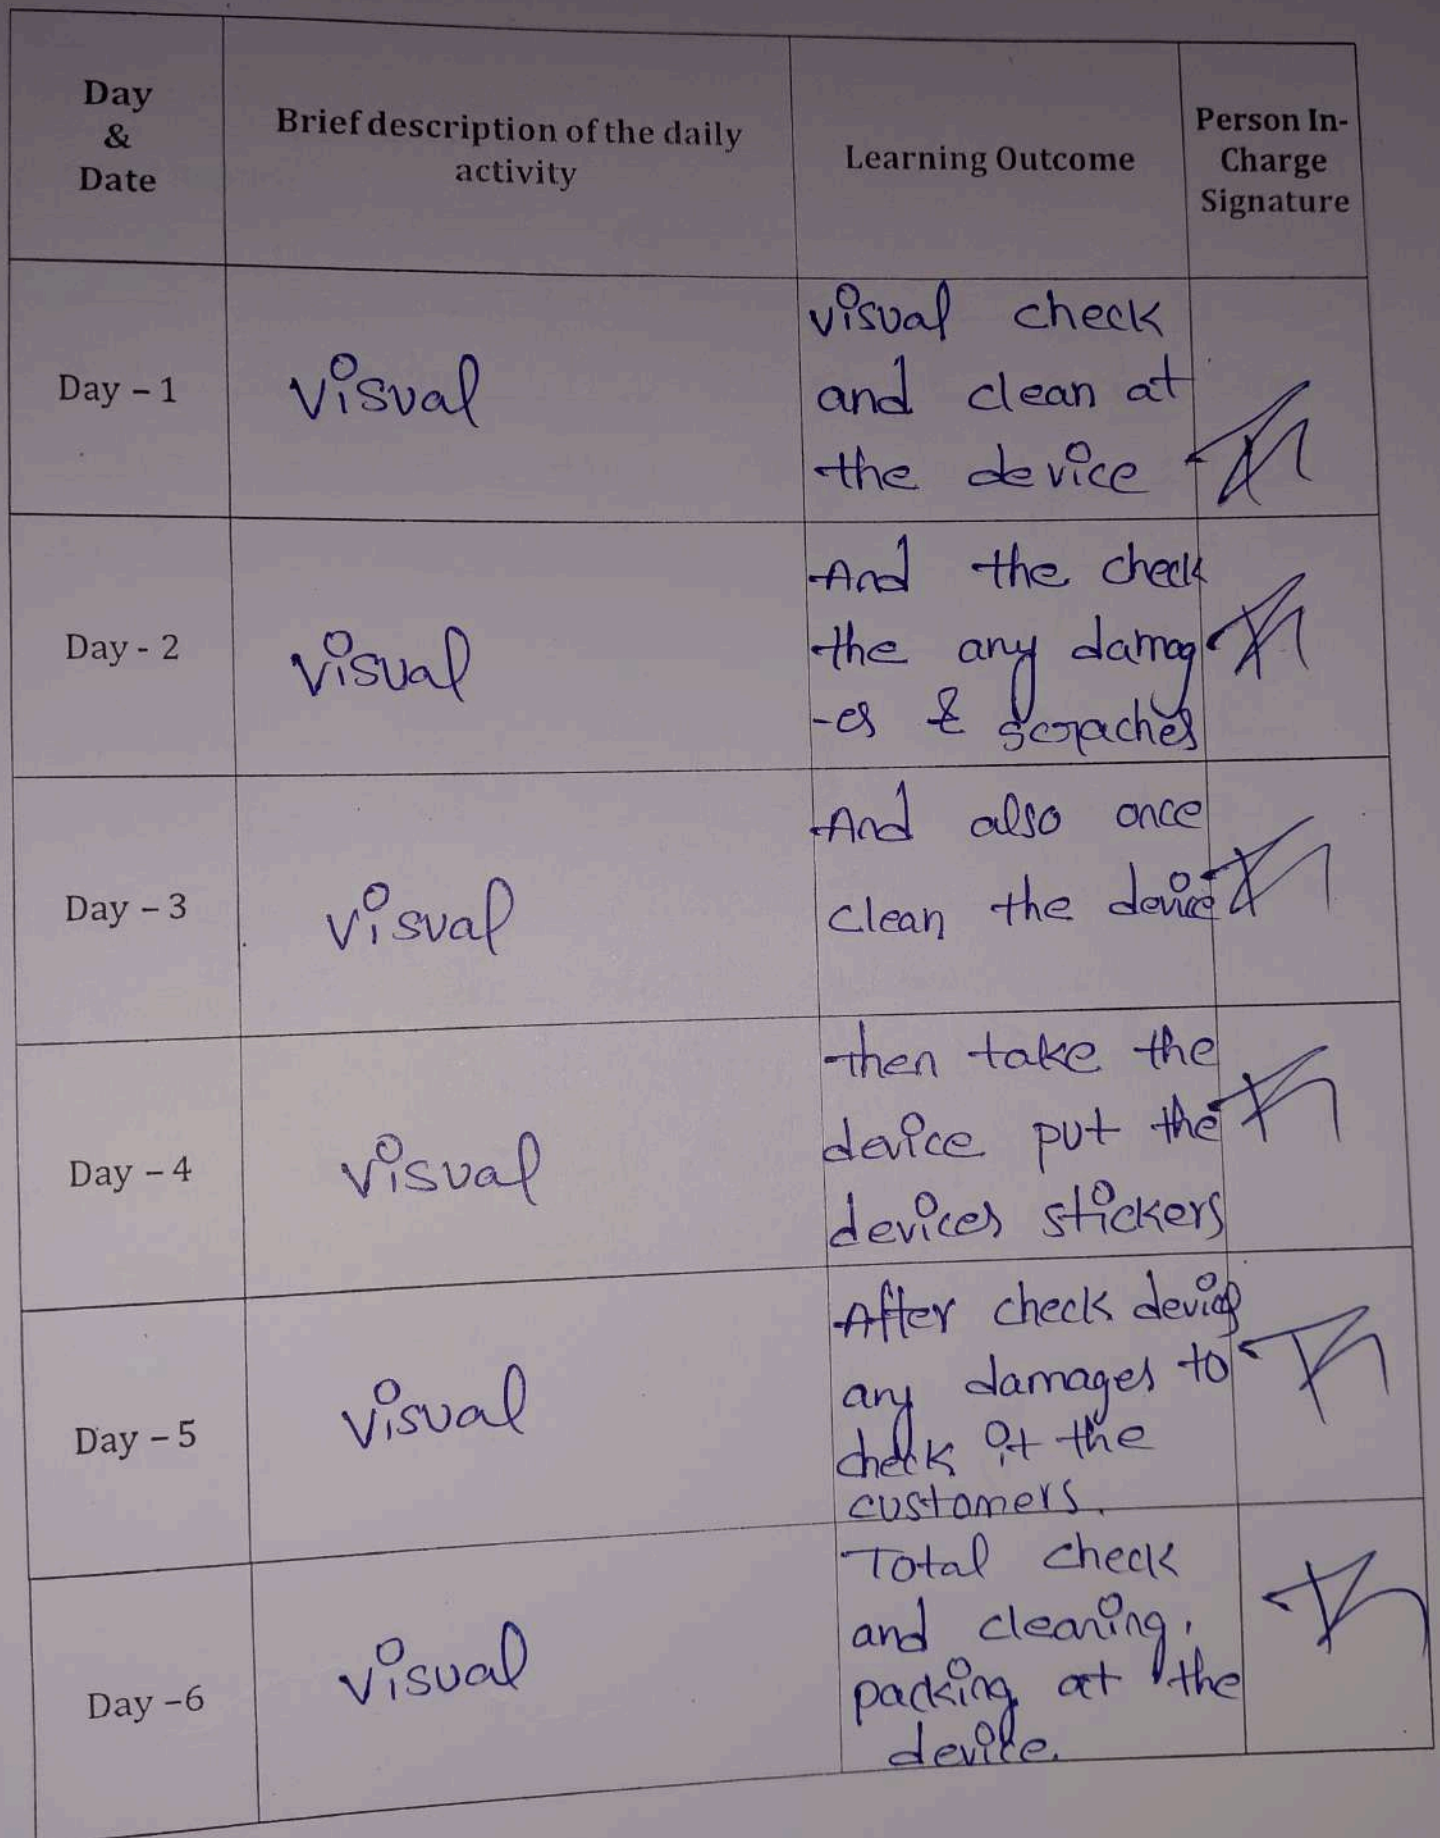 Day
&
Date
Brief description of the daily
activity
Learning Outcome
Person In-
Charge
Signature
Day – 1
visual
visual check
and clean at
the device
Day - 2
visual
And the check
the any damag
-es & scraches
Day – 3
visual
And also once
clean the device
Day – 4
visual
then take the
device put the
devices stickers
Day – 5
visual
After check device
any damages to
check it the
customers.
Day –6
visual
Total check
and cleaning,
packing at the
device.